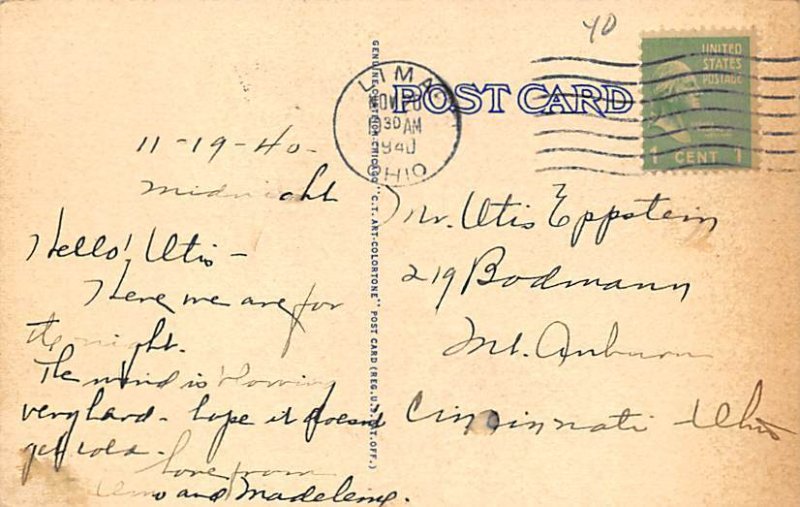 40
UNITED
STATES
POSTAGE
1 CENT 1
LIMA
NOV 20
30 AM
1940
OHIO
POST CARD
GENUINE CURTEICH-CHICAGO "C.T. ART-COLORTONE" POST CARD (REG. U.S. PAT. OFF.)
11-19-40-
Midnight
Hello! Utis -
Here we are for
the night.
The wind is blowing
very hard - hope it doesnt
get cold.
Love from
and Madeline.
Mr. Utis Eppstein
219 Bodmann
Mt. Auburn
Cincinnati Ohio